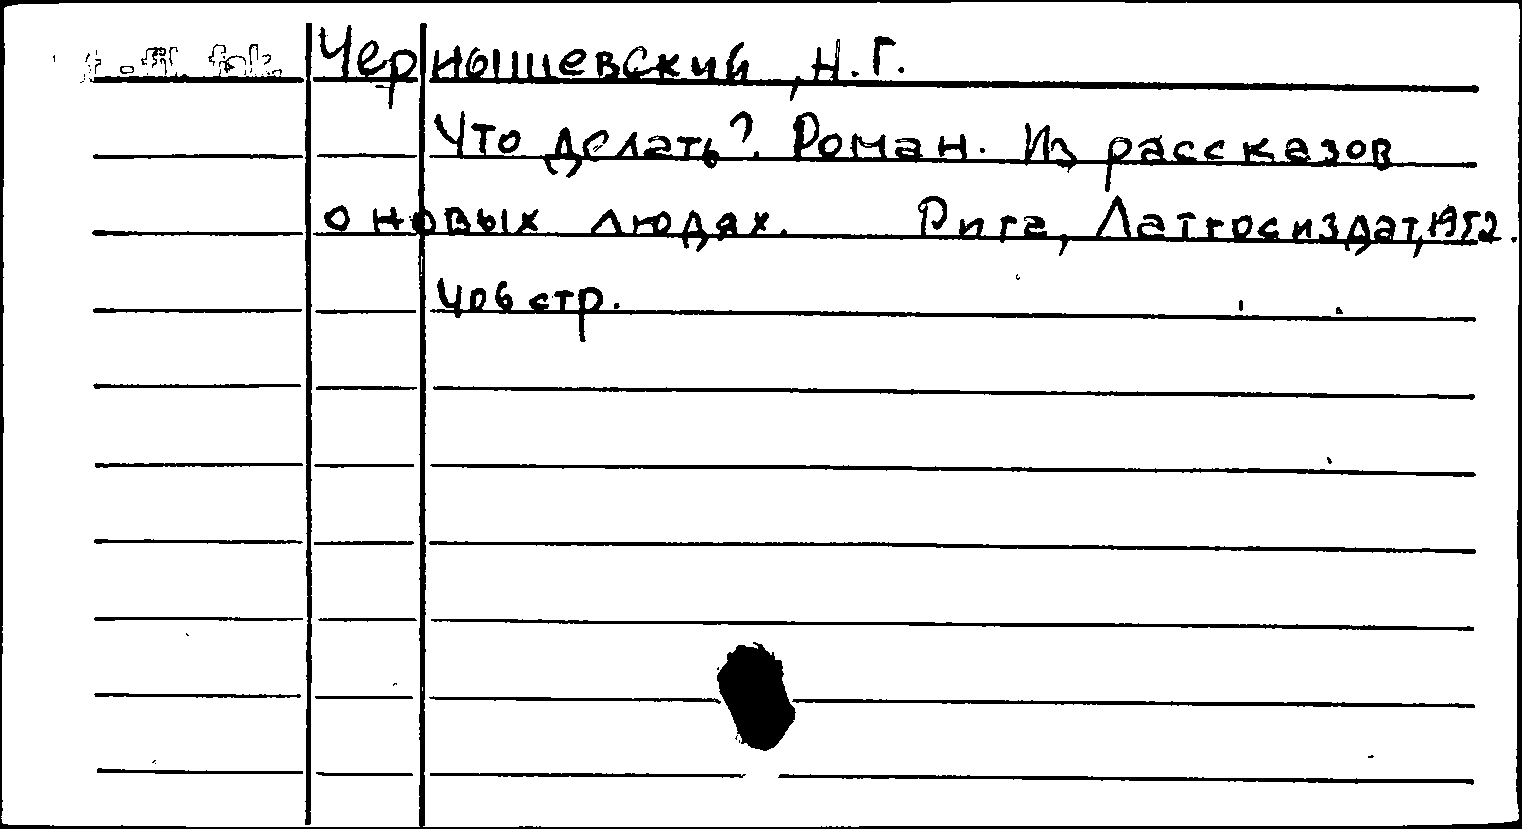 t.-fil. fak. Чернышевский, Н.Г.
Что делать? Роман. Из рассказов
о новых людях. Рига, Латгосиздат, 1952.
406 стр.